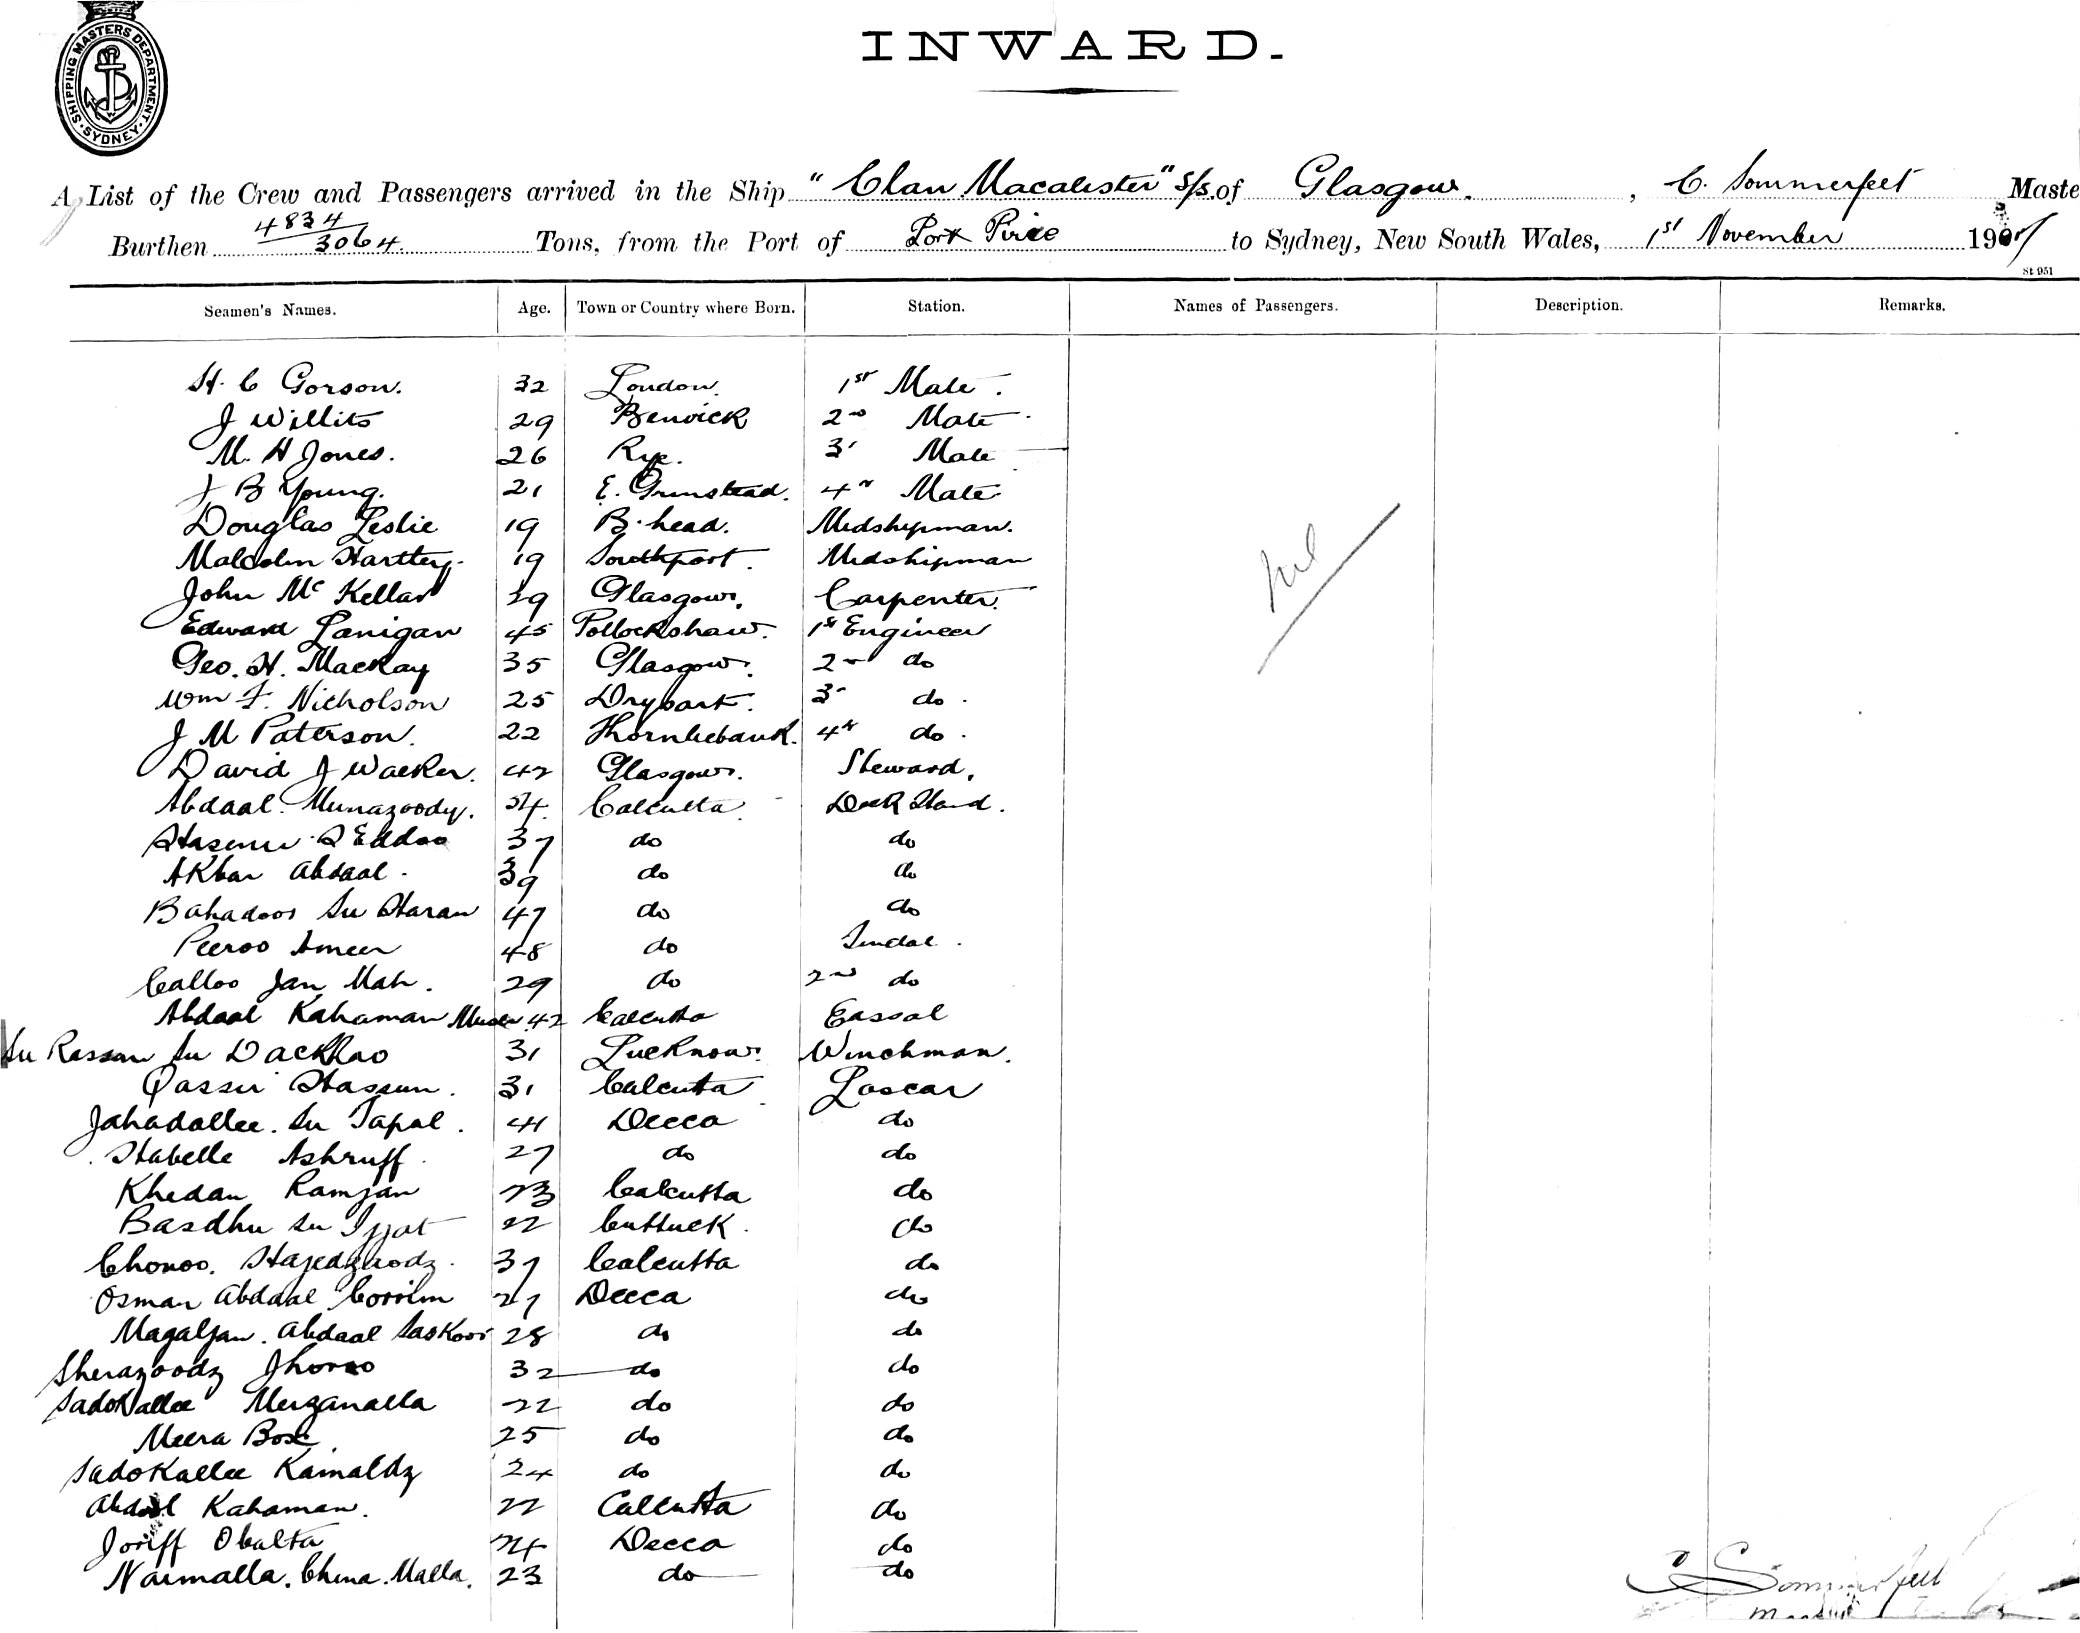 SHIPPING MASTERS DEPARTMENT
SYDNEY
INWARD.
A List of the Crew and Passengers arrived in the Ship "Clan Macalister" S/S. of Glasgow. , C. Sommerfelt Maste
Burthen 4834 / 3064 Tons, from the Port of Port Pirie to Sydney, New South Wales, 1st November 1907
St 951
Seamen's Names. Age. Town or Country where Born. Station. Names of Passengers. Description. Remarks.
H. C Gorson. 32 London. 1st Mate.
J Willits 29 Benwick 2nd Mate
M. H Jones. 26 Rye. 3 Mate
J B Young. 21 E. Grinstead. 4th Mate
Douglas Leslie 19 B.head. Midshipman.
Malcolm Hartley. 19 Southport. Midshipman
Nil
John Mc Kellar 29 Glasgow. Carpenter.
Edward Lanigan 45 Pollockshaw. 1st Engineer
Geo. H. Mackay 35 Glasgow. 2nd do
Wm F. Nicholson 25 Drybart. 3 do.
J M Paterson. 22 Thornliebank. 4th do.
David J Walker. 42 Glasgow. Steward.
Abdaal Munazoody. 54. Calcutta Deck Hand.
37 do do
Akbar Abdaal. 39 do do
Bahadoor Su Haran 47 do do
Peeroo Ameer 48 do Tindal.
Calloo Jan Mah. 29 do 2nd do
Abdaal Kahaman 42 Calcutta Cassal
Su Rassan Su 31 Lucknow. Winchman.
Qassir Hassun. 31 Calcutta Lascar
Jahadallee. Su Tapal. 41 Decca do
Habelle Ashruff. 27 do do
Khedan Ramjan 23 Calcutta do
Basdhu Su Izzat 22 Cuttuck. do
Chonoo. Hajedzoodz. 37 Calcutta do
Osman Abdaal Corrim 27 Decca do
Magaljan. Abdaal Saskoor 28 do do
Sherazoodz Jhoroo 32 do do
Sadokallee Merzanalla 22 do do
Meera Box 25 do do
Sadokallee Kamaldz 24 do do
Abdool Kahaman. 22 Calcutta do
Joriff Obalta 24 Decca do
Naimalla. China. Malla. 23 do do
C Sommerfelt